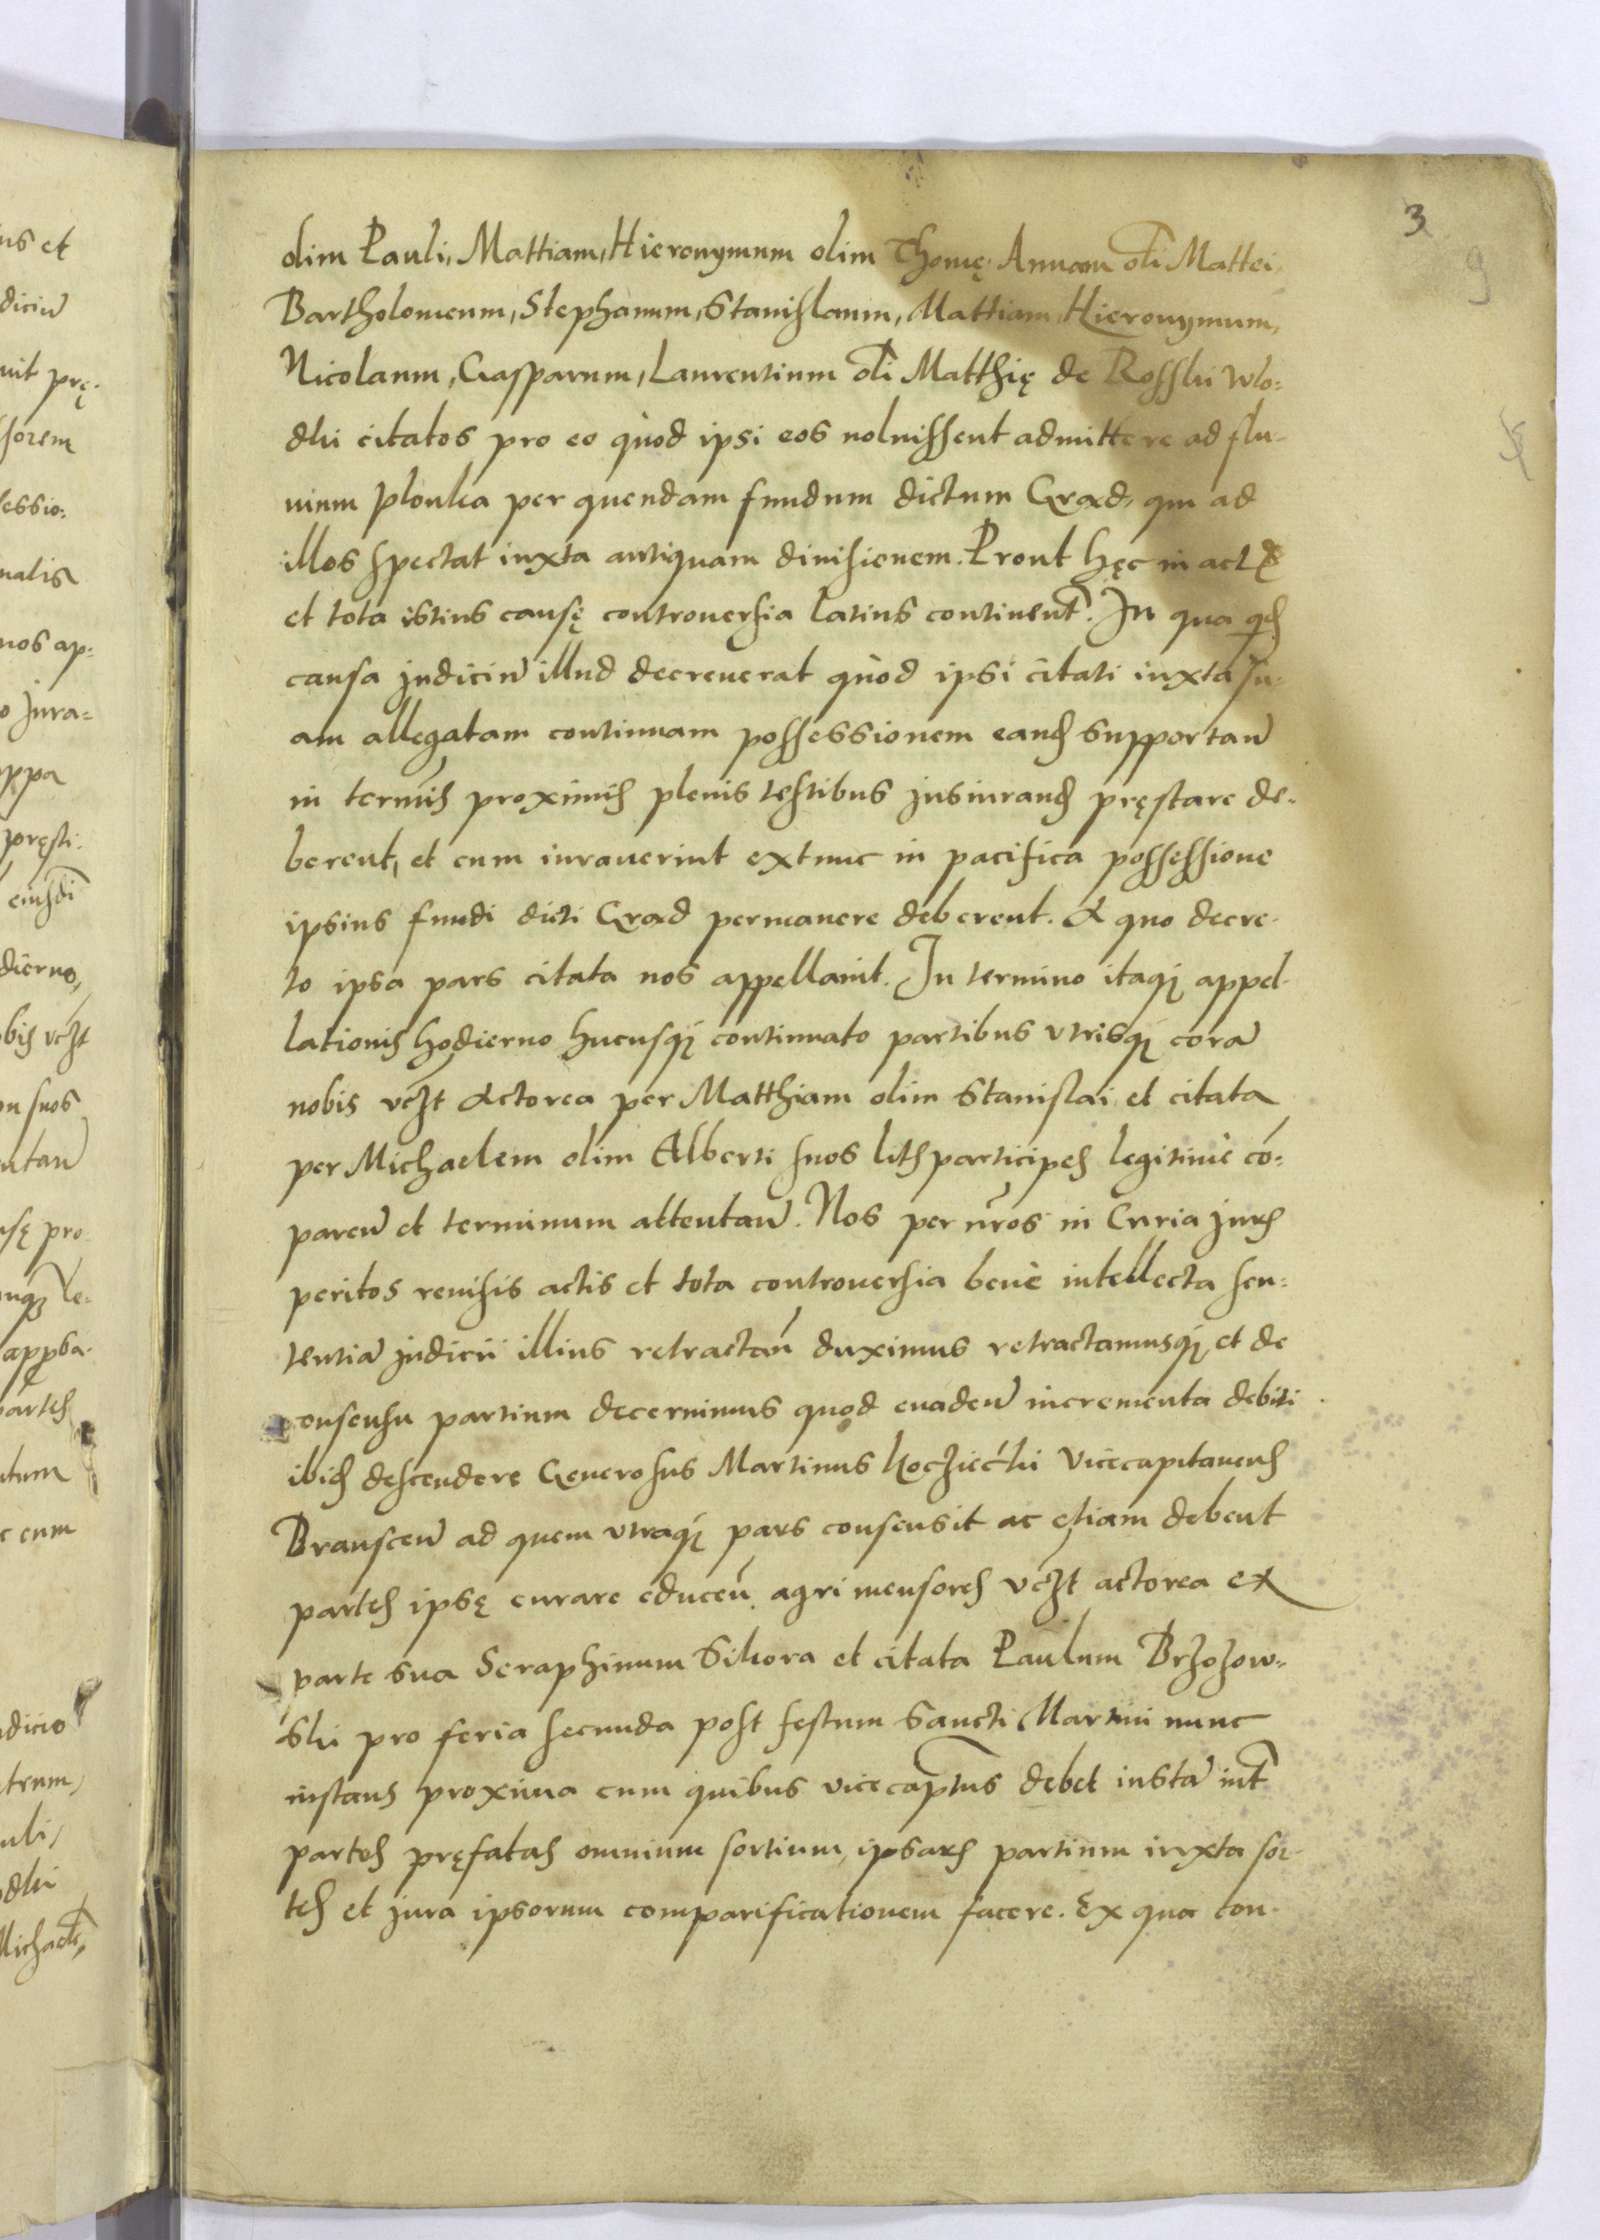 3
9
olim Pauli, Mattiam, Hieronymum olim Thomę. Annam oli Mattei,
Bartholomeum, Stephanum, Stanislaum, Mattiam, Hieronymum,
Nicolaum, Casparum, Laurentium oli Matthię de Rosski Wlo=
dki citatos pro eo quòd ipsi eos noluissent admittere ad flu-
uium Plonka per quendam fundum dictum Grad, qui ad
illos spectat iuxta antiquam diuisionem. Prout hęc in act
et tota istius causę controuersia latius continent. In qua qd
causa judiciu illud decreuerat quòd ipsi citati iuxta su-
am allegatam continuam possessionem eand supportan
in terminis proximis plenis testibus jusiurand pręstare de-
berent, et cum iurauerint extunc in pacifica possessione
ipsius fundi dicti Grad permanere deberent. A quo decre-
to ipsa pars citata nos appellauit. In termino itaq appel-
lationis hodierno hucusq continuato partibus vtrisq cora
nobis vczt Actorea per Matthiam olim Stanislai et citata
per Michaelem olim Alberti suos litis participes legitimè co=
paren et terminum attentan. Nos per nros in Curia juris
peritos reuisis actis et tota controuersia benè intellecta sen=
tentia judicii illius retractan duximus retractamusq et de
consensu partium decernimus quod euaden incrementa debiti
ibid descendere Generosus Martinus Koczieċki Vicecapitaneus
Branscen ad quem vtraq pars consensit ac etiam debent
partes ipsę curare educen agri mensores vczt actorea ex
parte sua Seraphinum Sikora et citata Paulum Brzozow=
ski pro feria secunda post festum Sancti Martini nunc
instans proxima cum quibus vicecaptus debet insta int
partes pręfatas omnium sortium, ipsars partium iuxta sor-
tes et jura ipsorum comparificationem facere. Ex qua con-